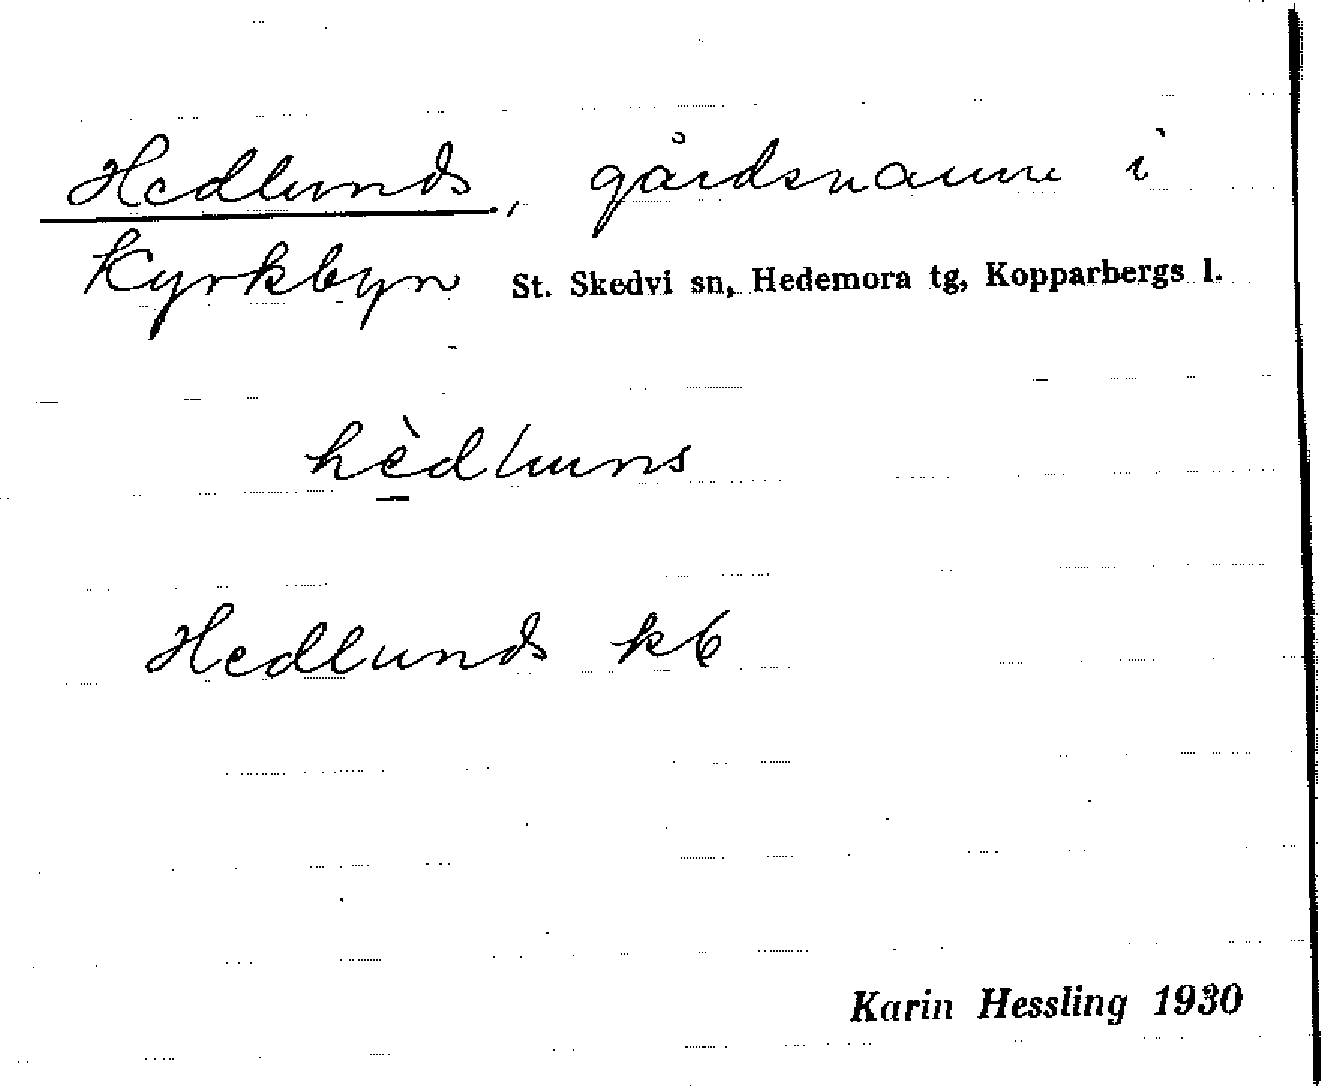 Hedlunds, gårdsnamn i
Kyrkbyn St. Skedvi sn, Hedemora tg, Kopparbergs l.
hèdluns
Hedlunds kb
Karin Hessling 1930